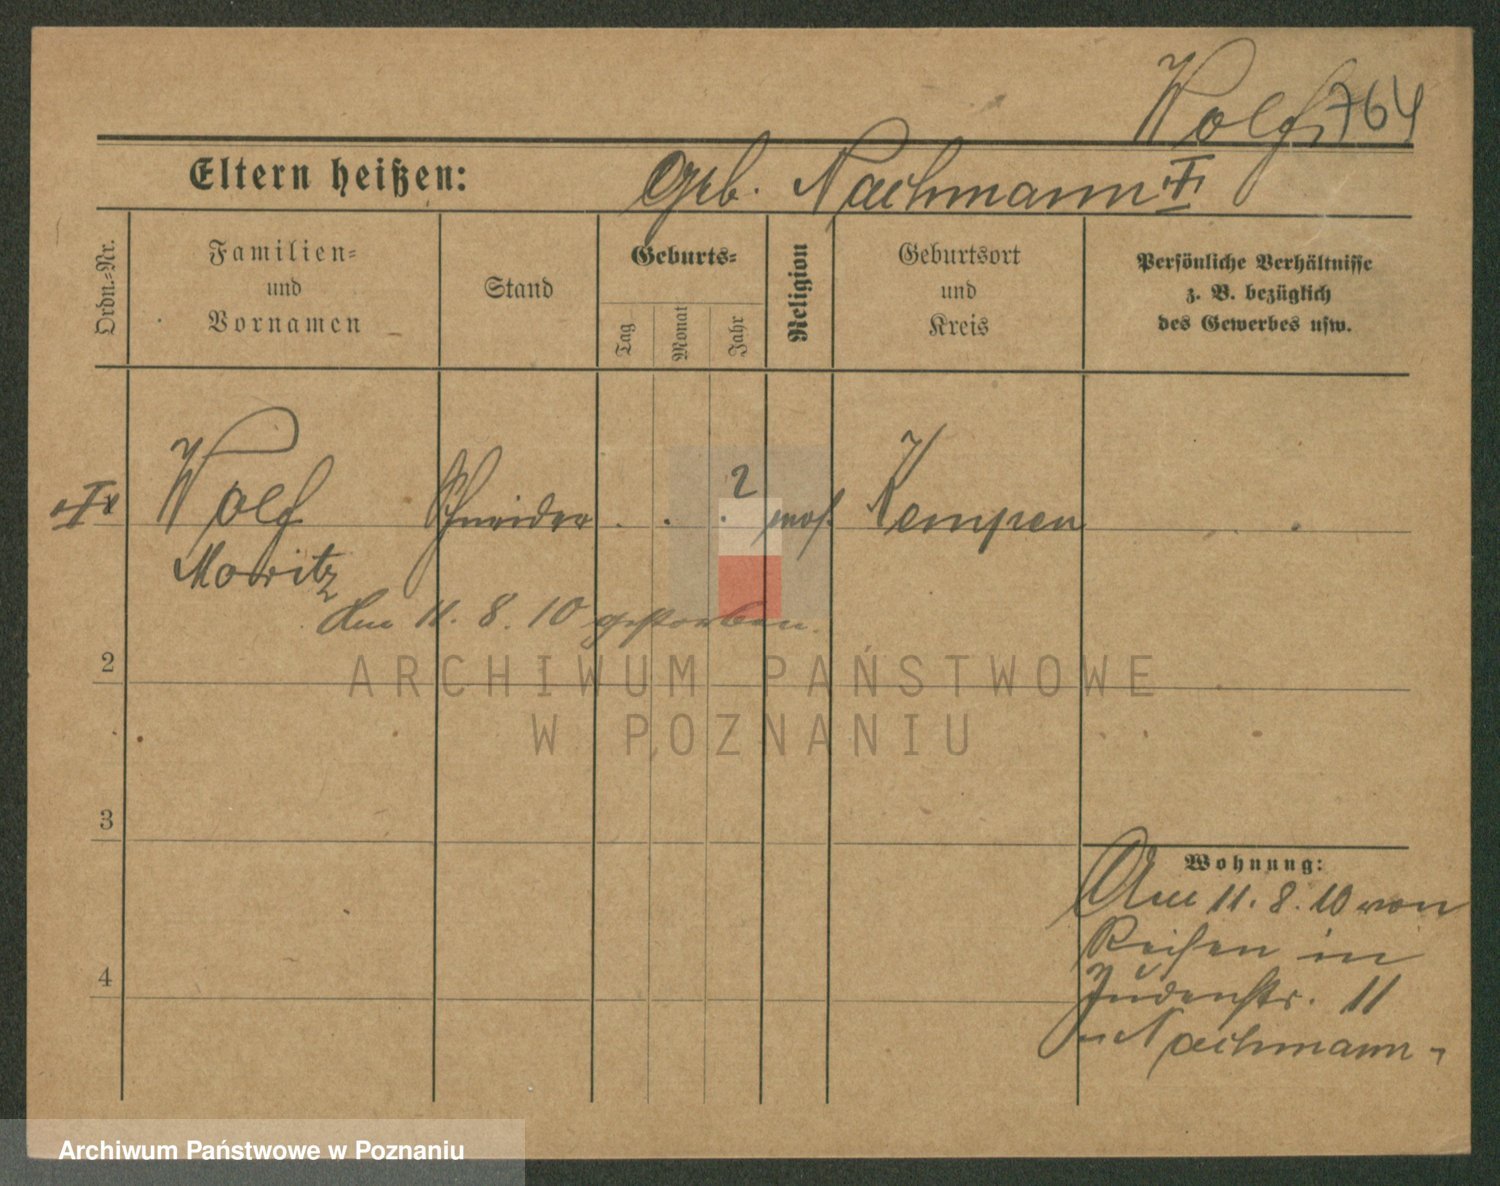 Wolf, 764
Eltern heißen:
geb. Nachmann
Ordn.-Nr.
Familien-
und
Vornamen
Stand
Geburts-
Tag
Monat
Jahr
Religion
Geburtsort
und
Kreis
Persönliche Verhältnisse
z. B. bezüglich
des Gewerbes usw.
Wolf
Moritz
Schneider
. . . ?
mos.
Kempen
Am 11. 8. 10 gestorben.
2
ARCHIWUM PAŃSTWOWE
W POZNANIU
3
4
Wohnung:
Am 11. 8. 10 von
Reisen in
Judenstr. 11
Nachmann
Archiwum Państwowe w Poznaniu